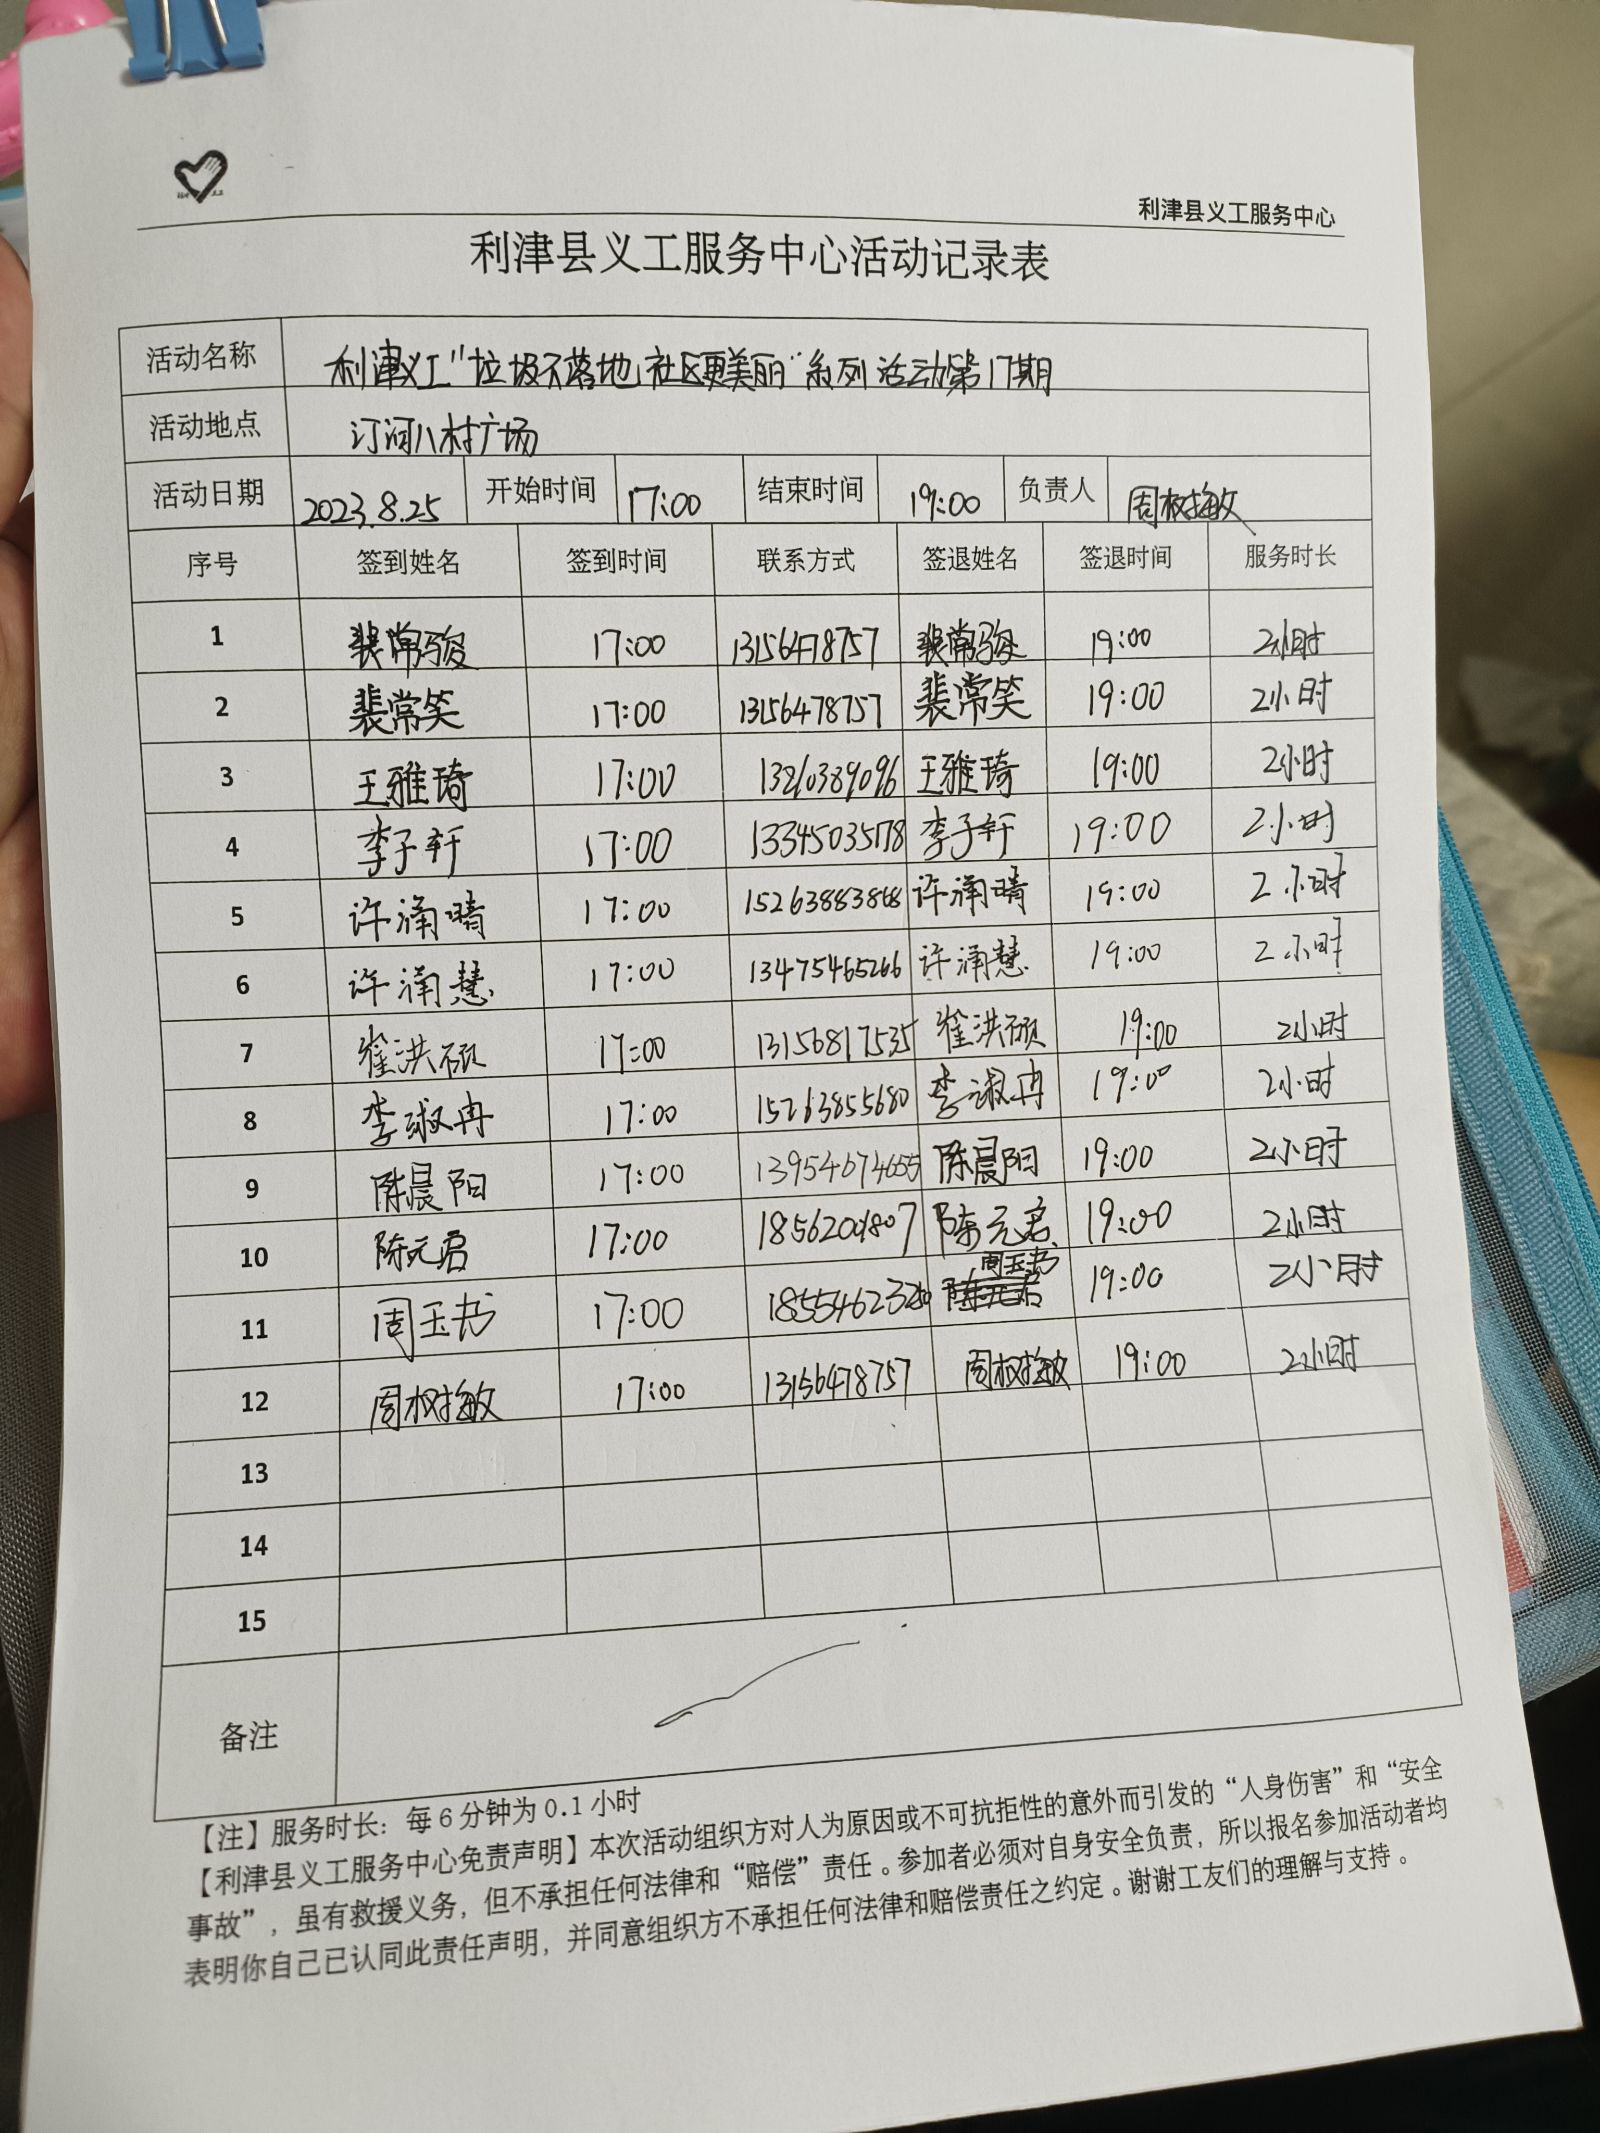 利津县义工服务中心
利津县义工服务中心活动记录表
活动名称 利津义工"垃圾不落地,社区更美丽"系列活动第17期
活动地点 汀河八村广场
活动日期 2023.8.25 开始时间 17:00 结束时间 19:00 负责人 周树敏
序号 签到姓名 签到时间 联系方式 签退姓名 签退时间 服务时长
1 裴常骏 17:00 13156478757 裴常骏 19:00 2小时
2 裴常笑 17:00 13156478757 裴常笑 19:00 2小时
3 王雅琦 17:00 王雅琦 19:00 2小时
4 李子轩 17:00 13345035178 李子轩 19:00 2小时
5 许涵晴 17:00 15263883868 许涵晴 19:00 2小时
6 许涵慧 17:00 13475465266 许涵慧 19:00 2小时
7 崔洪硕 17:00 13156817535 崔洪硕 19:00 2小时
8 李淑冉 17:00 15263855680 李淑冉 19:00 2小时
9 陈晨阳 17:00 13954674655 陈晨阳 19:00 2小时
10 陈元君 17:00 陈元君 19:00 2小时
11 周玉书 17:00 周玉书 19:00 2小时
12 周树敏 17:00 13156478757 周树敏 19:00 2小时
13
14
15
备注
【注】服务时长：每6分钟为0.1小时
【利津县义工服务中心免责声明】本次活动组织方对人为原因或不可抗拒性的意外而引发的“人身伤害”和“安全
事故”，虽有救援义务，但不承担任何法律和“赔偿”责任。参加者必须对自身安全负责，所以报名参加活动者均
表明你自己已认同此责任声明，并同意组织方不承担任何法律和赔偿责任之约定。谢谢工友们的理解与支持。